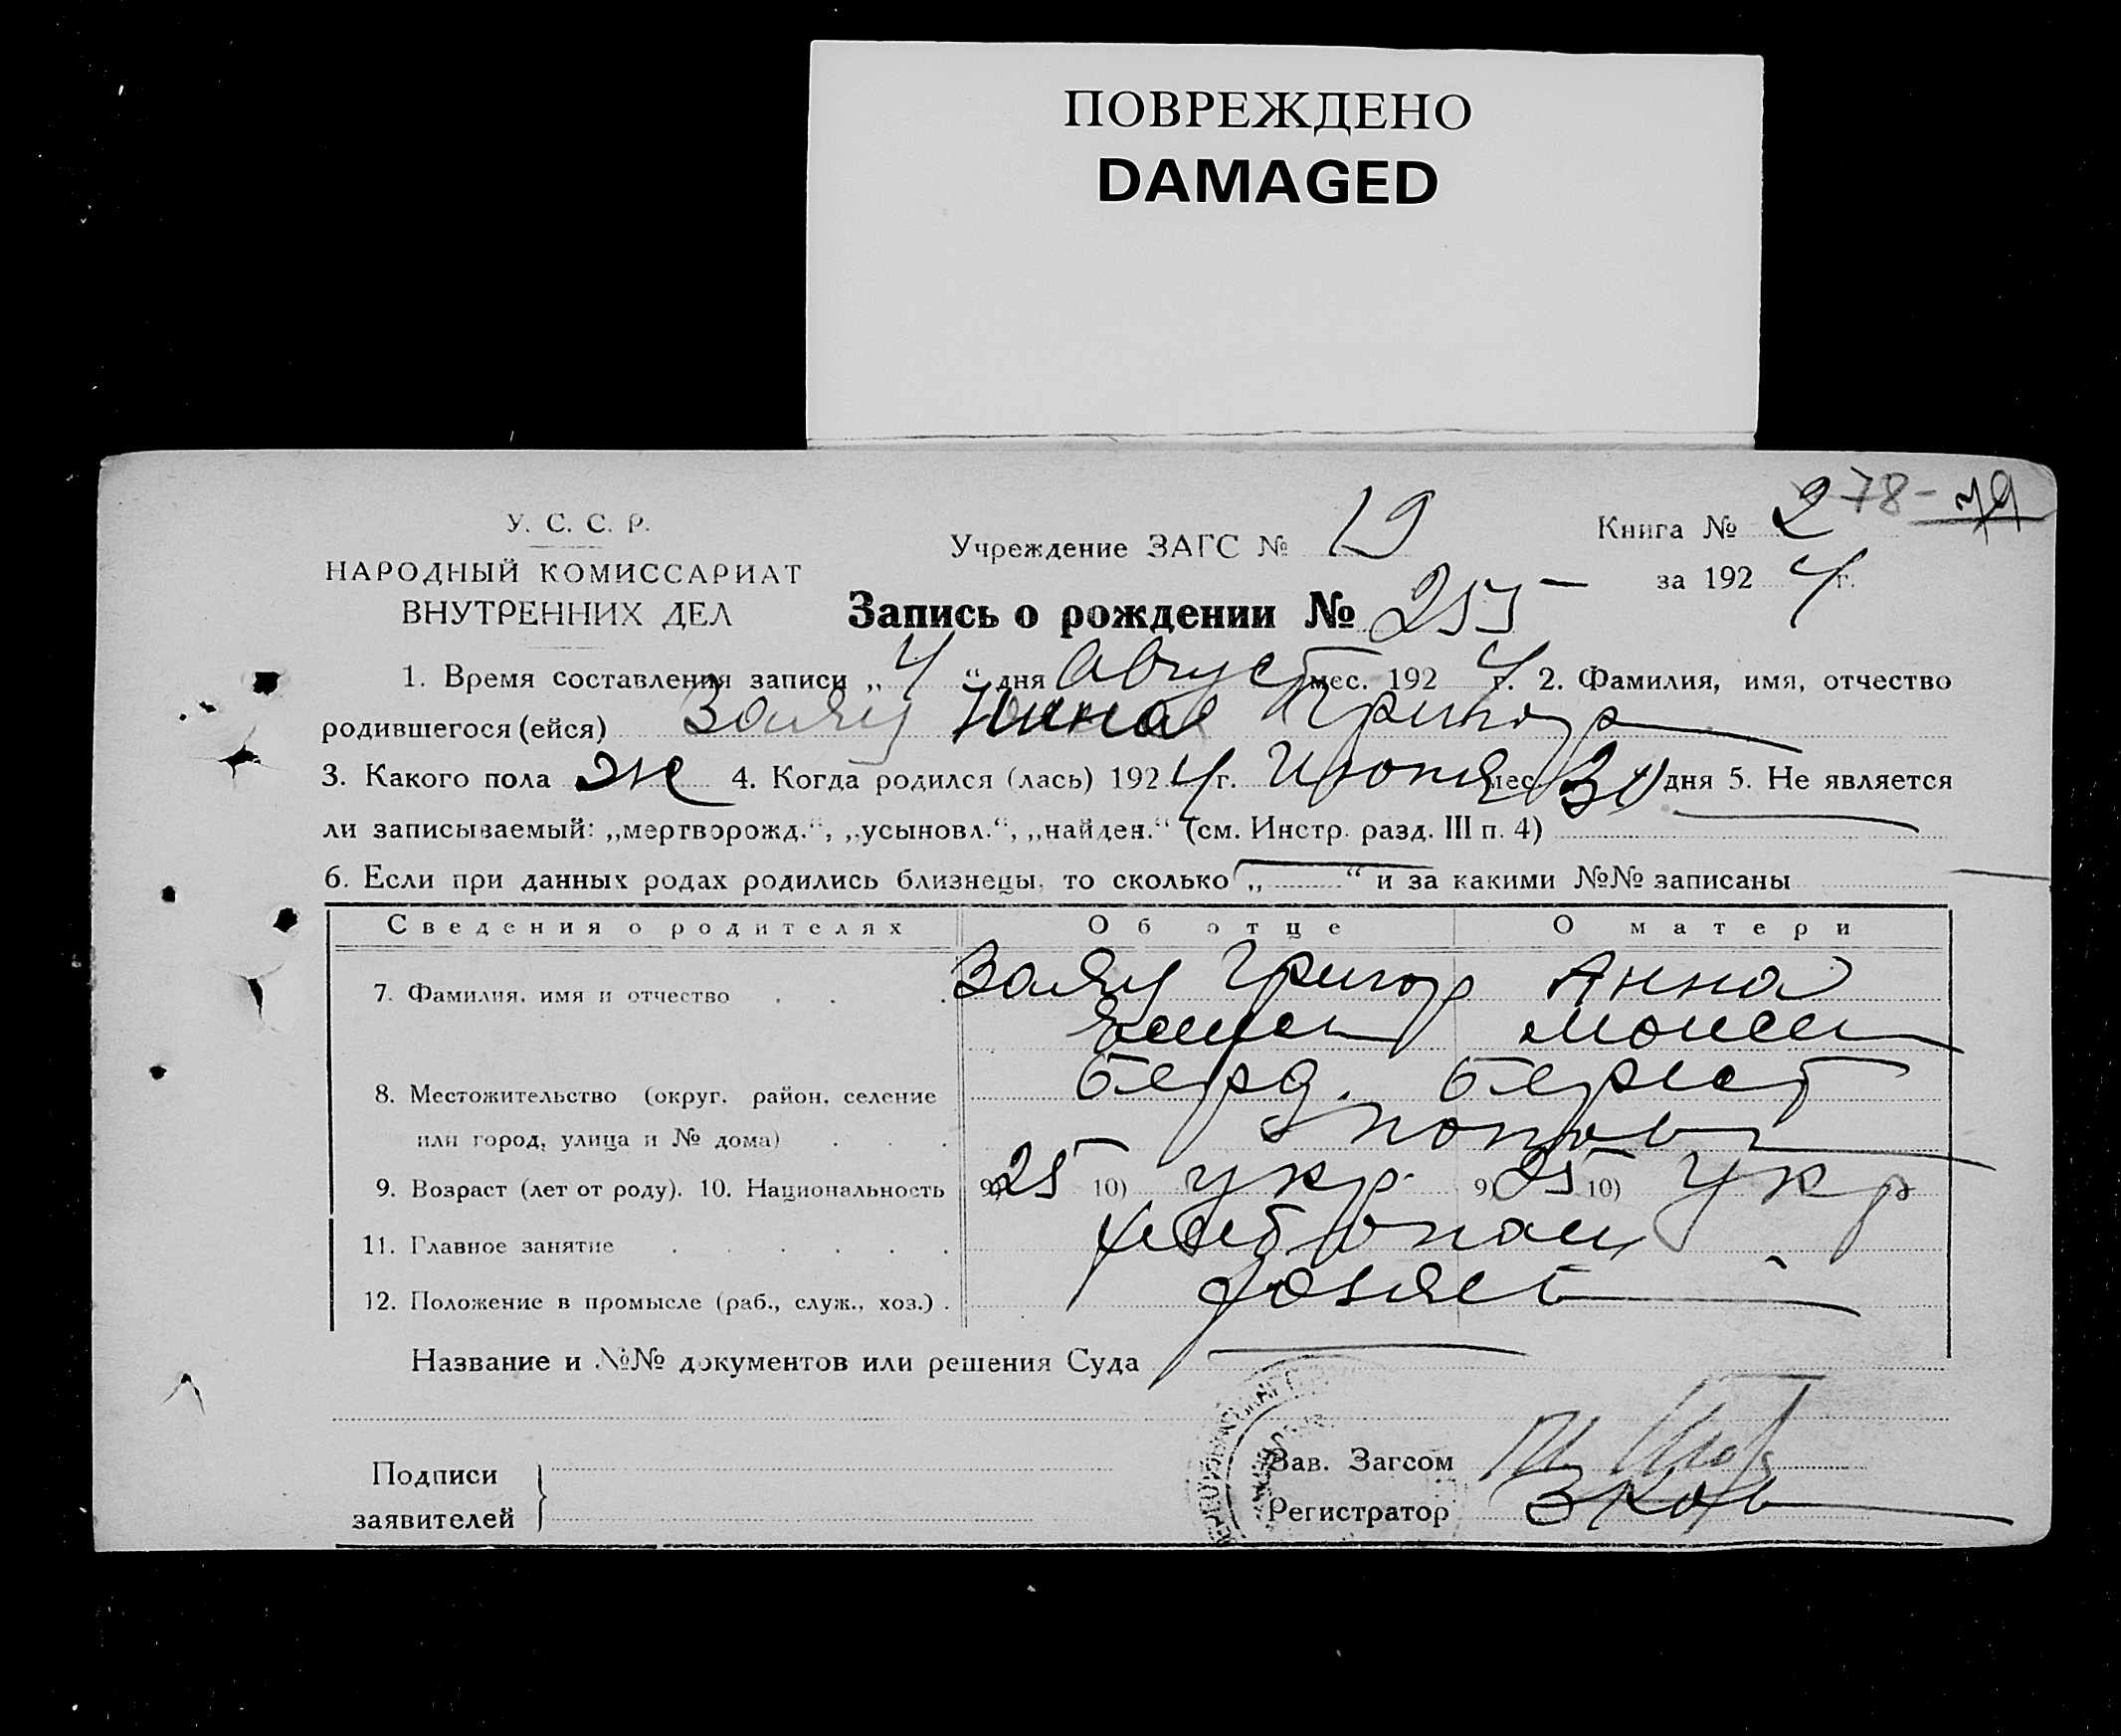 ПОВРЕЖДЕНО
DAMAGED
278-79
У. С. С. Р.
НАРОДНЫЙ КОМИССАРИАТ
ВНУТРЕННИХ ДЕЛ
Учреждение ЗАГС № 19
Книга № 2
за 1924 г.
Запись о рождении № 255
1. Время составления записи „4“ дня Август мес. 1924 г. 2. Фамилия, имя, отчество
родившегося (ейся) Заяц Нина Григор
3. Какого пола Ж 4. Когда родился (лась) 1924 г. Июля мес. 30 дня 5. Не является
ли записываемый: „мертворожд.“, „усыновл.“, „найден.“ (см. Инстр. разд. III п. 4)
6. Если при данных родах родились близнецы, то сколько „ “ и за какими №№ записаны
Сведения о родителях Об отце О матери
7. Фамилия, имя и отчество . . . Заяц Григор Анна
Моисе
8. Местожительство (округ, район, селение Берд. берест
или город, улица и № дома) . . .
9. Возраст (лет от роду). 10. Национальность 9) 25 10) укр. 9) 25 10) Укр
11. Главное занятие . . . . . . хлебопаш
12. Положение в промысле (раб., служ., хоз.) . хозяев
Название и №№ документов или решения Суда
Подписи
заявителей
Зав. Загсом
Регистратор